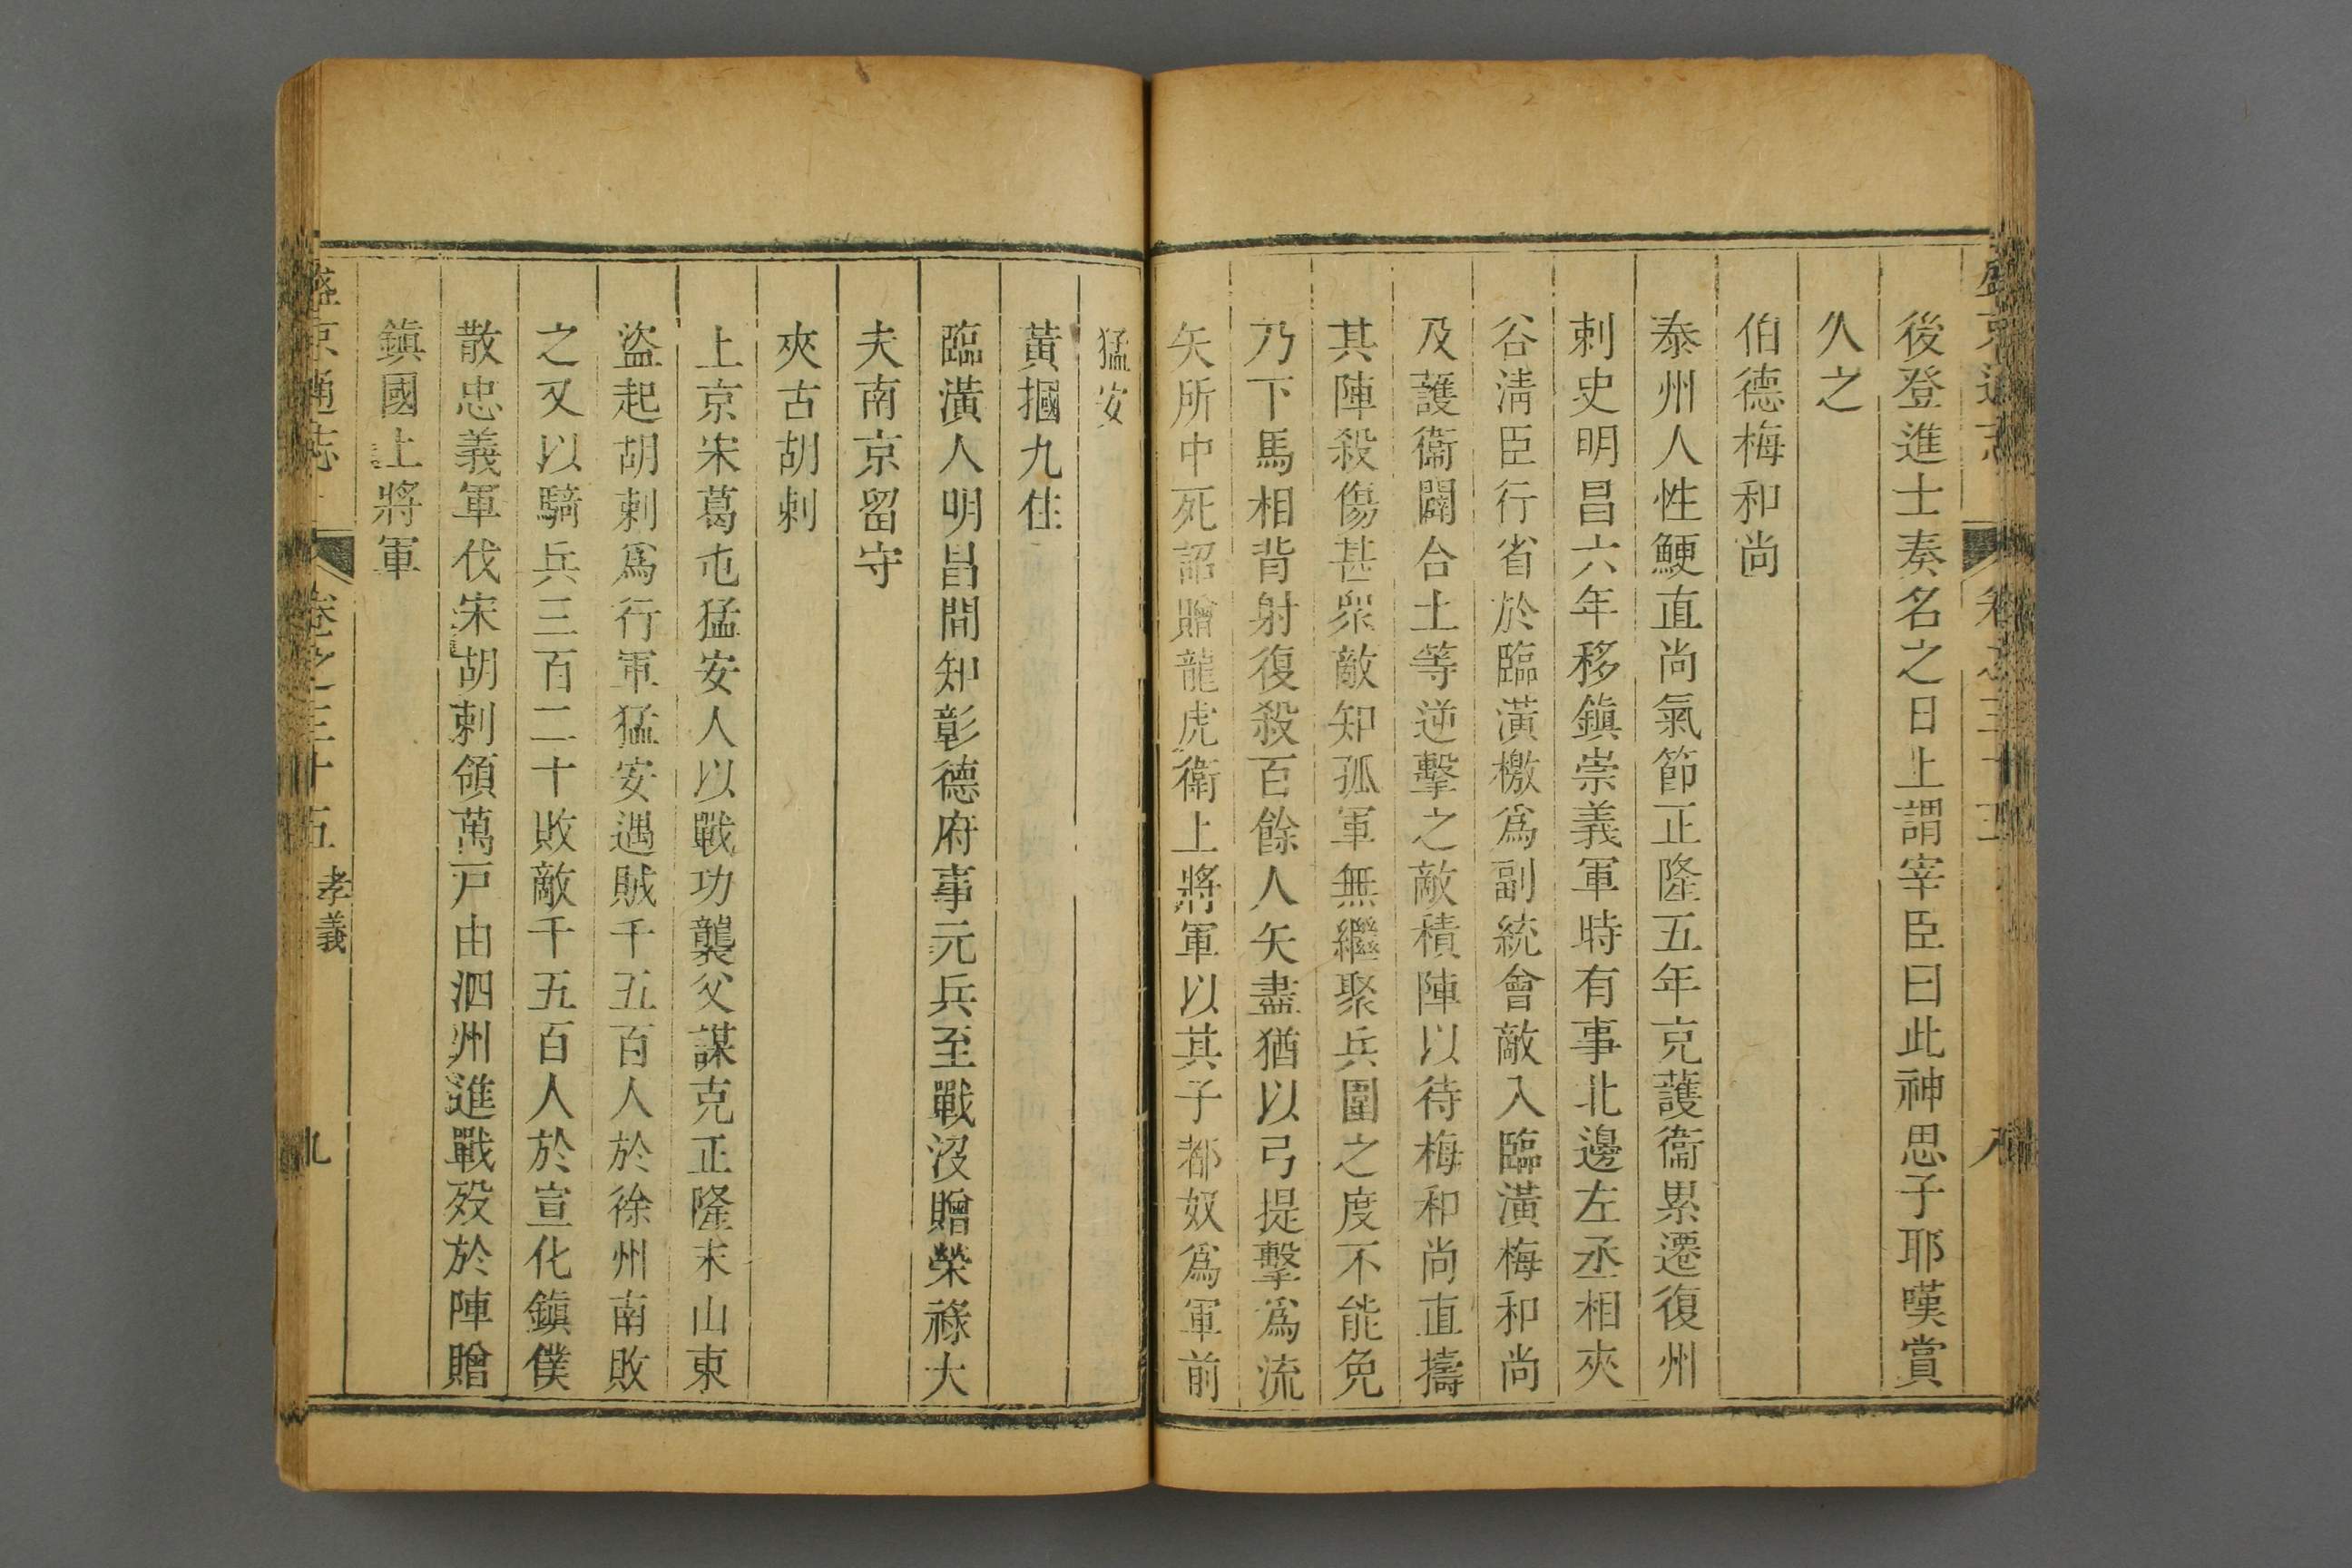 盛京通志 卷之三十五 八
後登進士奏名之日上謂宰臣曰此神思子耶嘆賞
久之
伯德梅和尚
泰州人性鯁直尚氣節正隆五年克護衞累遷復州
刺史明昌六年移鎮崇義軍時有事北邊左丞相夾
谷淸臣行省於臨潢檄爲副統會敵入臨潢梅和尚
及護衞闢合土等逆擊之敵積陣以待梅和尚直擣
其陣殺傷甚衆敵知孤軍無繼聚兵圍之度不能免
乃下馬相背射復殺百餘人矢盡猶以弓提擊爲流
矢所中死詔贈龍虎衛上將軍以其子都奴爲軍前
猛安
黃摑九住
臨潢人明昌間知彰德府事元兵至戰沒贈榮祿大
夫南京留守
夾古胡剌
上京宋葛屯猛安人以戰功襲父謀克正隆末山東
盜起胡剌爲行軍猛安遇賊千五百人於徐州南敗
之又以騎兵三百二十敗敵千五百人於宣化鎮僕
散忠義軍伐宋胡剌領萬戸由泗州進戰歿於陣贈
鎮國上將軍
盛京通志 卷之三十五 孝義 九